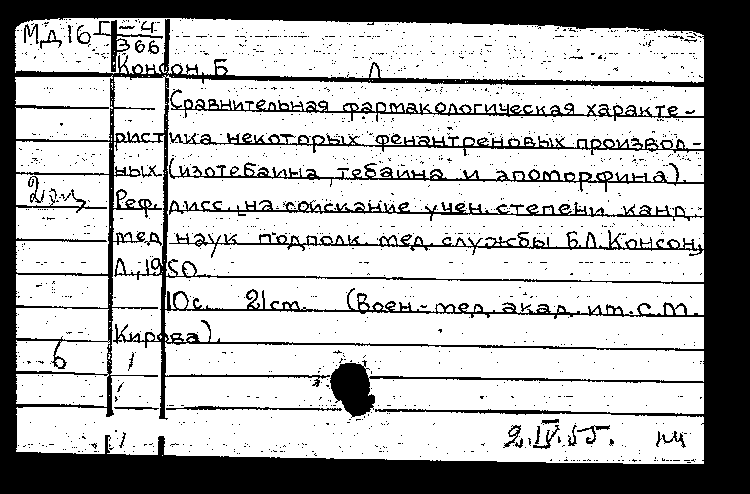 Мд 16 I-4
366
Консон, Б Л
Сравнительная фармакологическая характе-
ристика некоторых фенантреновых производ-
ных (изотебаина, тебаина и апоморфина).
2 экз Реф. дисс. на соискание учен. степени канд.
мед наук подполк. мед. службы Б.Л. Консон,
Л., 1950.
10с. 21см. (Воен.-мед. акад. им. С.М.
Кирова).
6
2.IV.55.